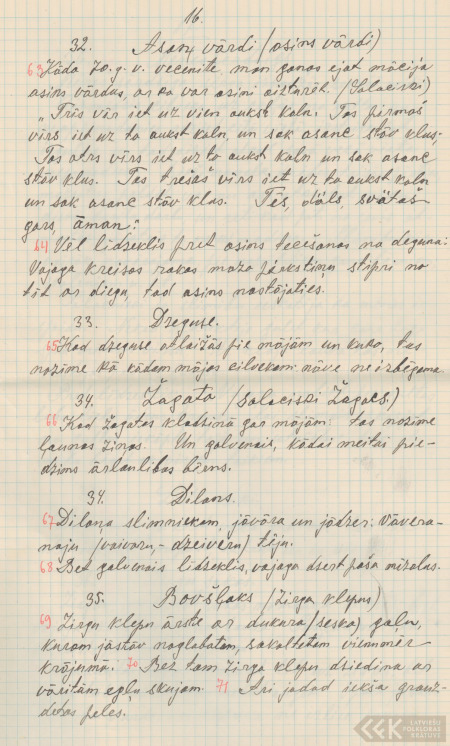 16.
32. Asaņ vārdi (asins vārdi)
63 Kāda 70.g. v. vecenīte, man ganos ejot mācīja
asins vārdus, ar ko var asini aizturēt. (Salaciski)
"Trīs vīr iet uz vien aukst kaln. Tas pirmais
vīrs iet uz to aukst kaln, un sak asane stāv klus;
Tas otrs vīrs iet uz to aukst kaln un sak asane
stāv klus. Tas trešais vīrs iet uz to aukst kaln
un sak asane stāv klus. Tēs, dāls, svātais
gars, āman."
64 Vēl līdzeklis pret asins tecēšanos no deguna:
Vajaga kreisās rokas mazo pirkstiņu stipri no
tīt ar diegu, tad asins nostājaties.
33. Dzeguse.
65 Kad dzeguse atlaižās pie mājām un kuko, tas
nozīme kā kādam mājas cilvekam nāve neizbēgama
34. Žagata (Salaciski Žagacs.)
66 Kad žagatas kladzinā gar mājām: tas nozīme
ļaunas ziņas. Un galvenais, kādai meitai pie-
dzims ārlaulības bērns.
34. Dilons.
67 Dilona slimniekam, jāvāra un jādzer: vāvera-
nāju (vaivaru,- dzeiveru) tēju.
68 Bet galvenais līdzeklis, vajaga dzert paša mīzalus.
35. Bovšļaks (Zirga klepus)
69 Zirgu klepu ārste ar dukura (seska) galvu,
kuram jāstāv noglabātam, sakaltētam vienmēr
krājumā. 70 Bez tam zirga klepu dziedina ar
vārītām egļu skujam. 71 Arī jādod iekša grauz-
dētas peles.
LATVIEŠU
FOLKLORAS
KRĀTUVE